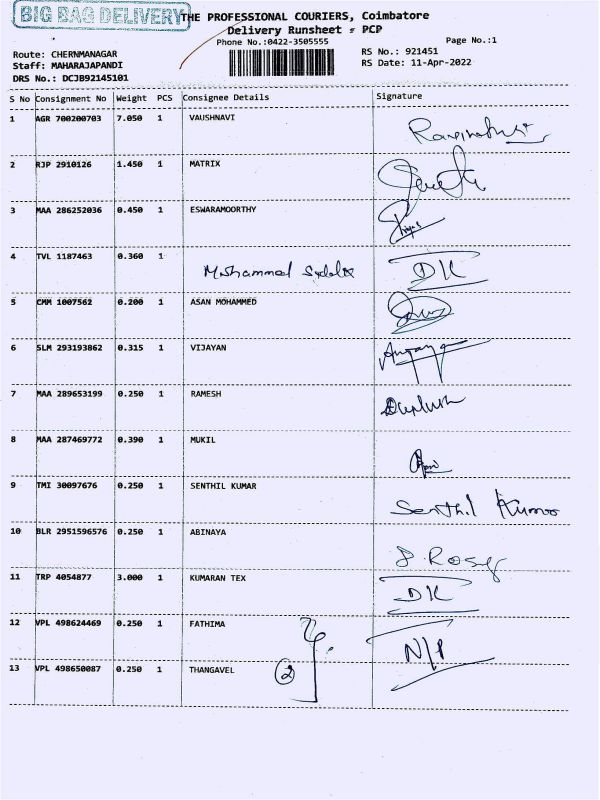 BIG BAG DELIVERY
THE PROFESSIONAL COURIERS, Coimbatore
Delivery Runsheet - PCP
Phone No.:0422-3505555
Page No.:1
Route: CHERNMANAGAR
RS No.: 921451
Staff: MAHARAJAPANDI
RS Date: 11-Apr-2022
DRS No.: DCJB92145101
S No Consignment No Weight PCS Consignee Details Signature
1 AGR 700200703 7.050 1 VAUSHNAVI
2 RJP 2910126 1.450 1 MATRIX
3 MAA 286252036 0.450 1 ESWARAMOORTHY
4 TVL 1187463 0.360 1
DK
5 CMM 1007562 0.200 1 ASAN MOHAMMED
6 SLM 293193862 0.315 1 VIJAYAN
7 MAA 289653199 0.250 1 RAMESH
8 MAA 287469772 0.390 1 MUKIL
9 TMI 30097676 0.250 1 SENTHIL KUMAR
Senthil Kumar
10 BLR 2951596576 0.250 1 ABINAYA
11 TRP 4054877 3.000 1 KUMARAN TEX
DK
12 VPL 498624469 0.250 1 FATHIMA
N/P
13 VPL 498650087 0.250 1 THANGAVEL 2